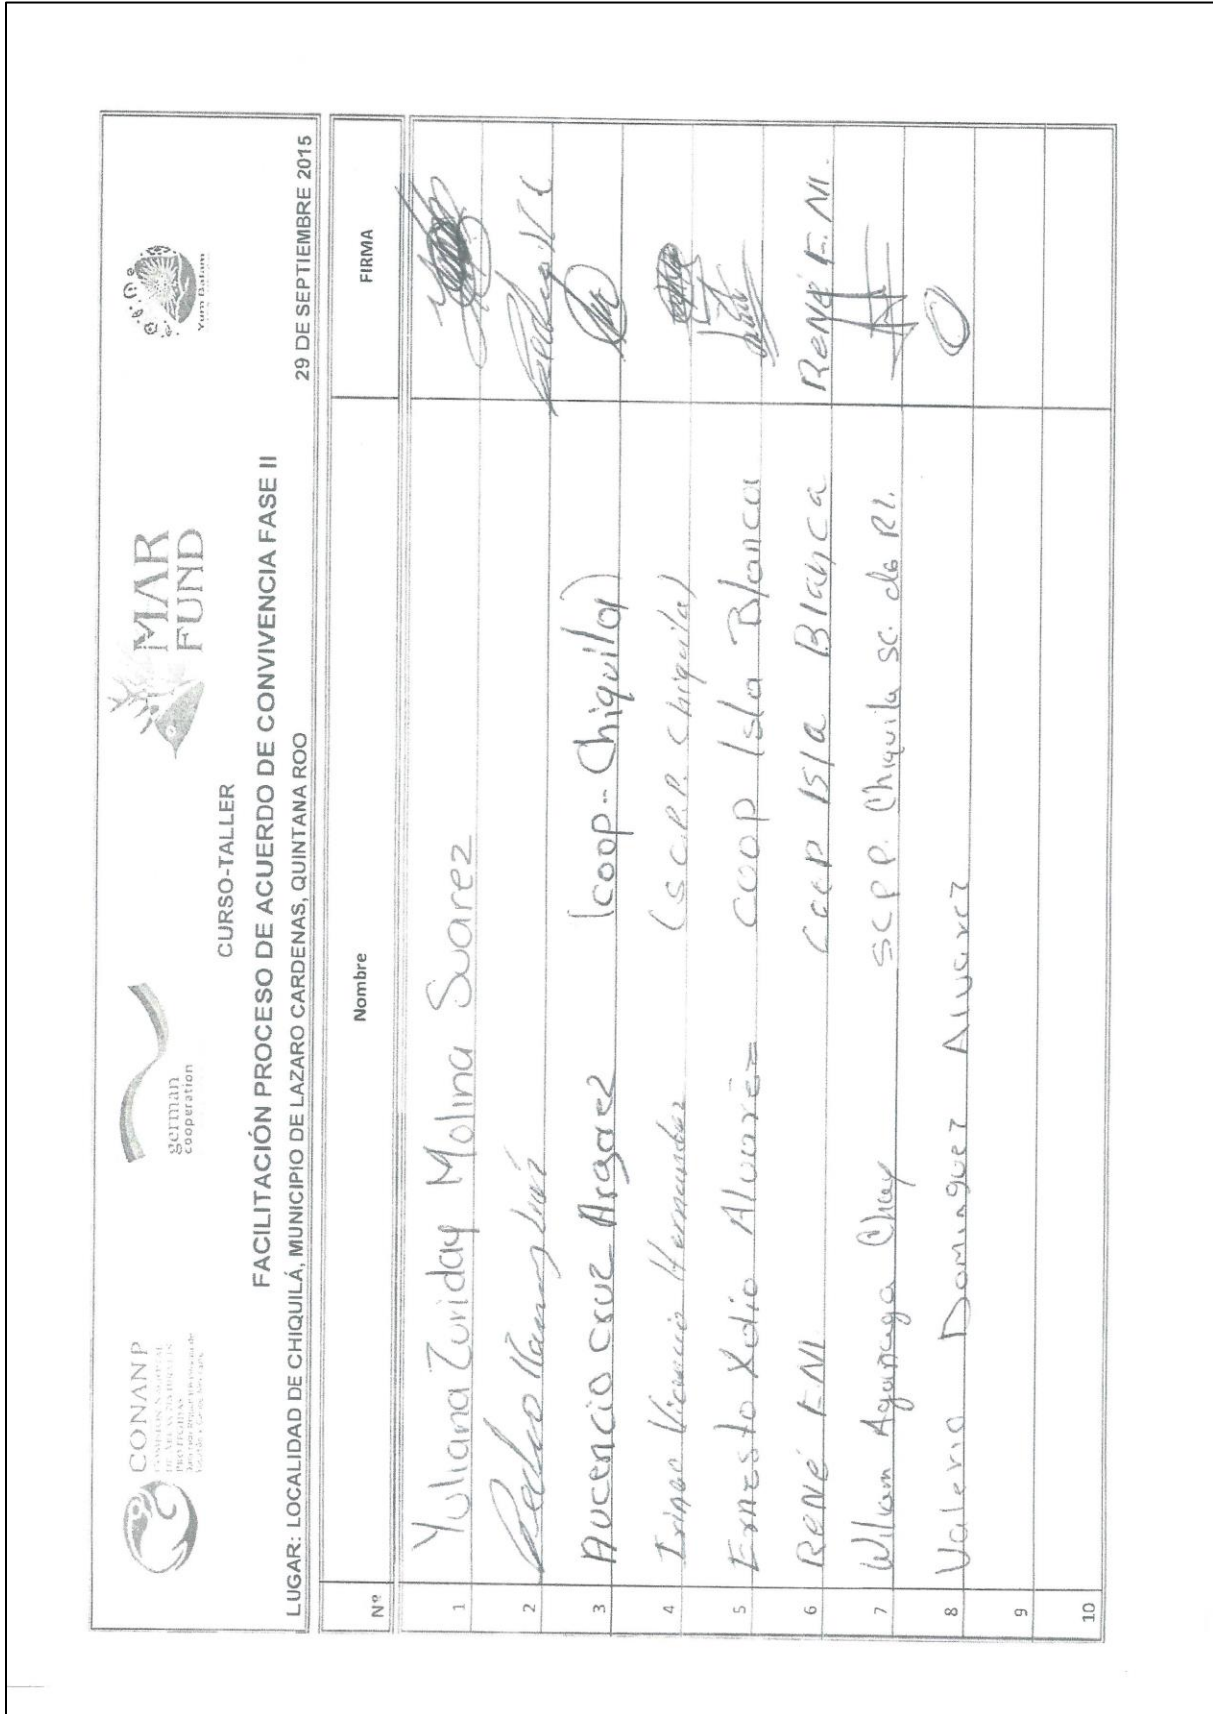 CONANP
COMISIÓN NACIONAL
DE ÁREAS NATURALES
PROTEGIDAS
german
cooperation
MAR
FUND
Yum Balam
CURSO-TALLER
FACILITACIÓN PROCESO DE ACUERDO DE CONVIVENCIA FASE II
LUGAR: LOCALIDAD DE CHIQUILÁ, MUNICIPIO DE LAZARO CARDENAS, QUINTANA ROO 29 DE SEPTIEMBRE 2015
Nº Nombre FIRMA
1 Yuliana Zuriday Molina Suarez
2 Pedro
3 Aucencio Cruz Argaez (coop-Chiquila)
4 Irineo Vicencio Hernandez (S.C.P.P. Chiquila)
5 Ernesto Xidio Alvarez coop Isla Blanca
6 René E.M. Coop Isla Blanca René E.M.
7 Wiliam Aguinaga Chuy SCPP Chiquila SC. de RL.
8 Valerio Dominguez Alvarez
9
10